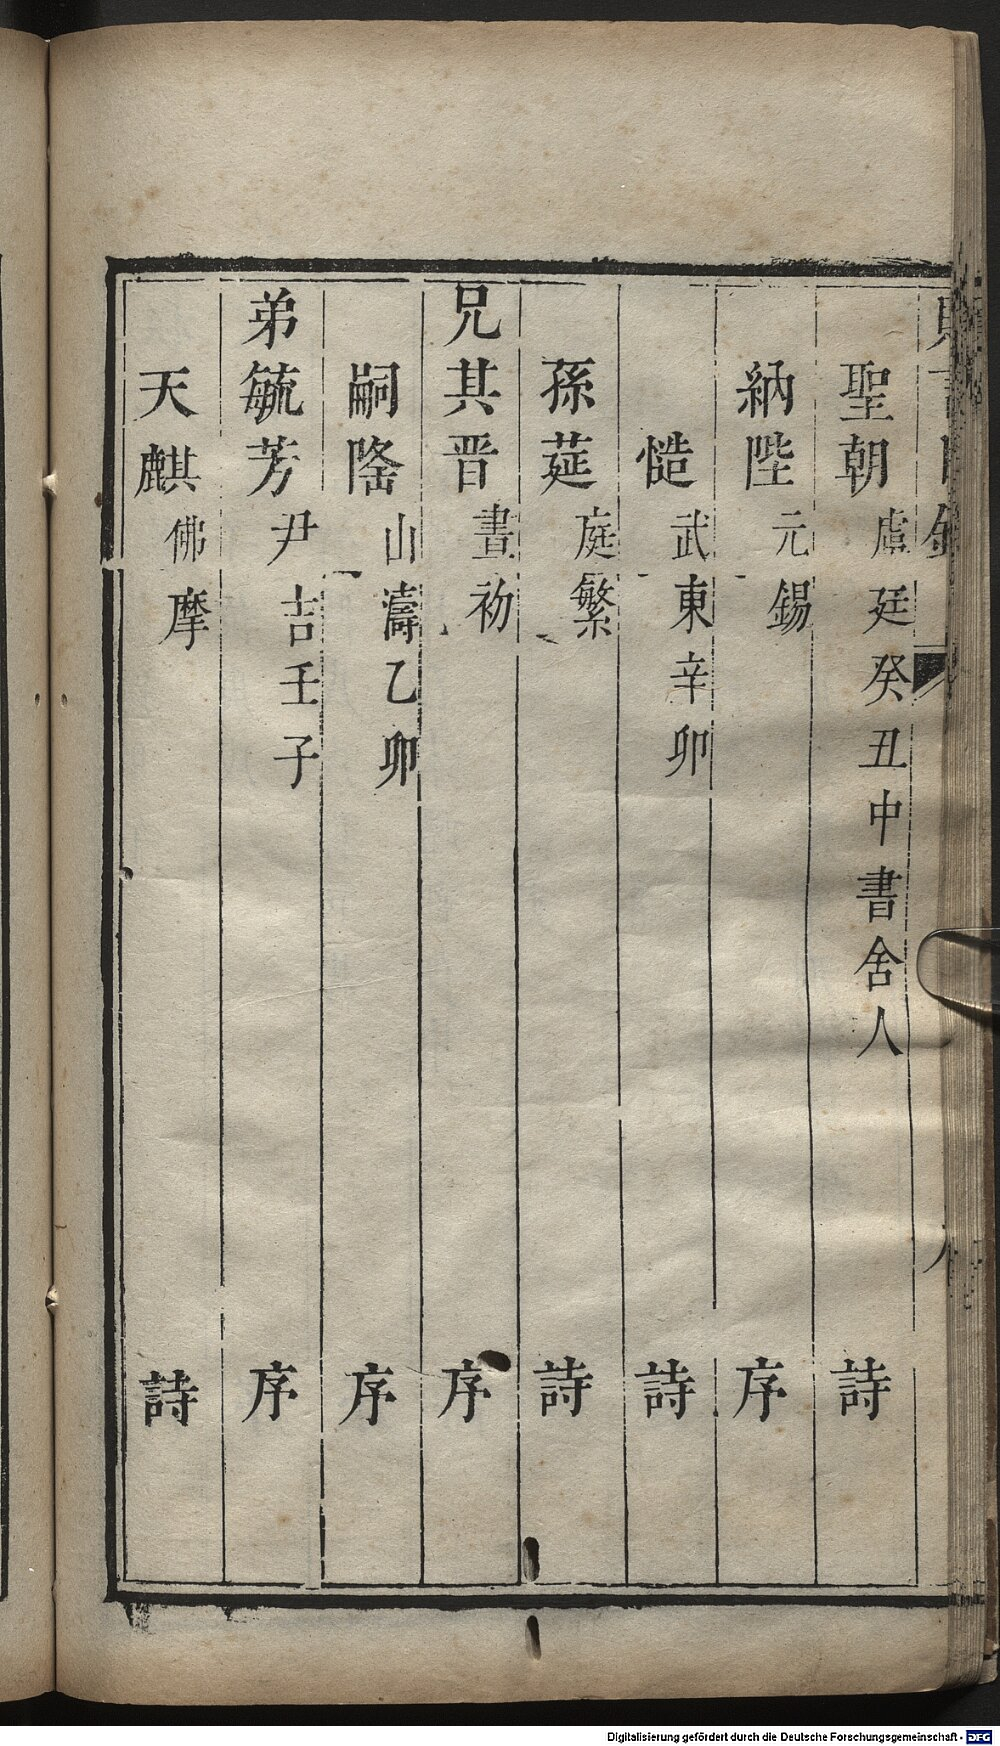 聖朝 虞廷癸丑中書舍人 詩
納陛 元錫 序
慥 武東辛卯 詩
孫莚 庭繁 詩
兄其晋 晝初 序
嗣隆 山濤乙卯 序
弟毓芳 尹吉壬子 序
天麒 佛摩 詩
Digitalisierung gefördert durch die Deutsche Forschungsgemeinschaft - DFG